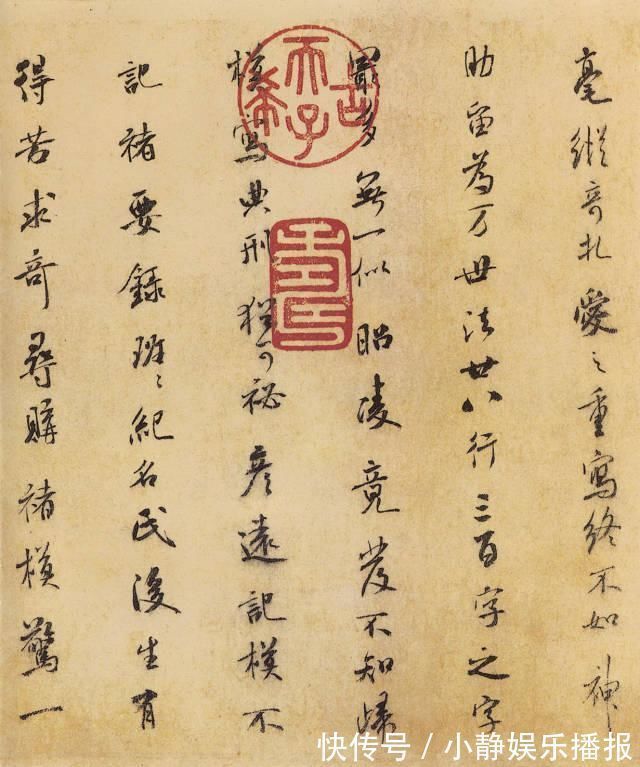 毫縱奇扎愛之重寫終不如神
助留為万世法廿八行三百字之字
㝡多無一似昭凌竟發不知歸
模寫典刑猶可祕彥遠記模不
記褚要錄班〻紀名氏後生有
得苦求奇尋購褚模驚一
古希天子
壽
快传号/小静娱乐播报